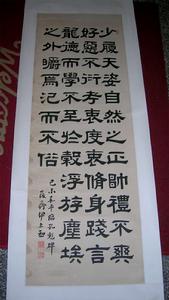 少履天姿自然之正帥禮不爽
好惡不衍考衷度衷脩身踐言
龍德而學不至於穀浮游塵埃
之外嚼焉汜而不俗
己未春 臨孔彪碑
伊立勳
Welcome